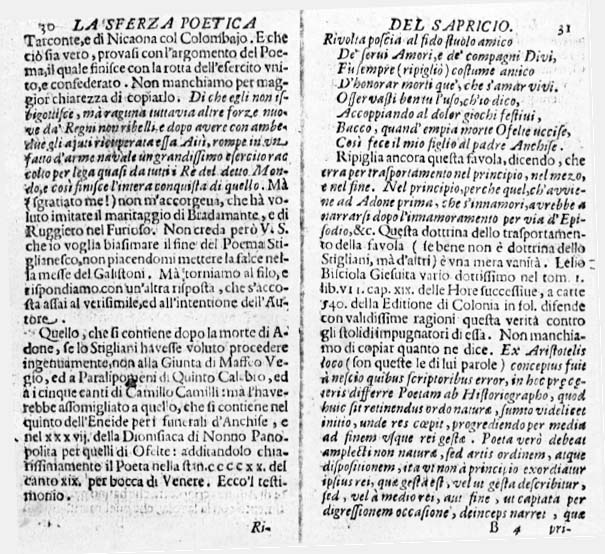 30 LA SFERZA POETICA
Tarconte, e di Nicaona col Colombajo. E che
ciò sia vero, provasi con l'argomento del Poe-
ma, il quale finisce con la rotta dell'esercito vni-
to, e confederato. Non manchiamo per mag-
gior chiarezza di copiarlo. Di che egli non is-
bigottisce, mà raguna tuttavia altre forze nuo-
ve da' Regni non ribelli, e dopo avere con ambe-
due gli ajuti ricuperata essa Aiti, rompe in vn
fatto d'arme navale un grandissimo esercito rac
colto per lega quasi da tutti i Re del detto Mon-
do, e così finisce l'intera conquista di quello. Mà
(sgratiato me!) non m'accorgeva, che hà vo-
luto imitate il maritaggio di Bradamante, e di
Ruggiero nel Furioso. Non creda però V. S.
che io voglia biasimare il fine del Poema Sti-
glianesco, non piacendomi mettere la falce nel-
la messe del Galistoni. Mà torniamo al filo, e
rispondiamo con un'altra risposta, che s'acco-
sta assai al verisimile, ed all'intentione dell'Au-
tore.
Quello, che si contiene dopo la morte di A-
done, se lo Stigliani havesse voluto procedere
ingenuamente, non alla Giunta di Maffeo Ve-
gio, ed a Paralipomeni di Quinto Calabro, ed
à i cinque canti di Camillo Camilli: ma l'have-
rebbe assomigliato a quello, che si contiene nel
quinto dell'Eneide per i funerali d'Anchise, e
nel xxxvij. della Dionisiaca di Nonno Pano-
polita per quelli di Ofelte: additandolo chia-
rissimamente il Poeta nella stan. ccccxx. del
canto xix. per bocca di Venere. Ecco'l testi-
monio.
Ri-
DEL SAPRICIO. 31
Rivolta poscia al fido stuolo amico
De' servi Amori, e de' compagni Divi,
Fu sempre (ripigliò) costume antico
D'honorar morti que', che s'amar vivi.
Osservasti ben tu l'uso, ch'io dico,
Accoppiando al dolor giochi festivi,
Bacco, quand'empia morte Ofelte uccise,
Così fece il mio figlio al padre Anchise.
Ripiglia ancora questa favola, dicendo, che
erra per trasportamento nel principio, nel mezo,
e nel fine. Nel principio, perche quel, ch'avvie-
ne ad Adone prima, che s'innamori, avrebbe a
narrarsi dopo l'innamoramento per via d'Epi-
sodio, &c. Questa dottrina dello trasportamen-
to della favola ( se bene non è dottrina dello
Stigliani, mà d'altri) è vna mera vanità. Lelio
Bisciola Giesuita vario dottissimo nel tom. 1.
lib. VI I. cap. xix. delle Hore successive, a carte
540. della Editione di Colonia in fol. difende
con validissime ragioni questa verità contro
gli stolidi impugnatori di essa. Non manchia-
mo di copiar quanto ne dice. Ex Aristotelis
loco (son queste le di lui parole) conceptus fuit
à nescio quibus scriptoribus error, in hoc præ cę-
teris differre Poetam ab Historiographo, quod
huic sit retinendus ordo naturæ, sumto videlicet
initio, unde res cœpit, progrediendo per media
ad finem vsque rei gestæ. Poeta verò debeat
amplecti non naturæ, sed artis ordinem, atque
dispositionem, ita vt non à principio exordiatur
ipsius rei, quæ gesta est, vel ut gesta describitur,
sed, vel à medio rei, aut fine, ut captata per
digressionem occasione, deinceps narret, quæ
B 4 pri-